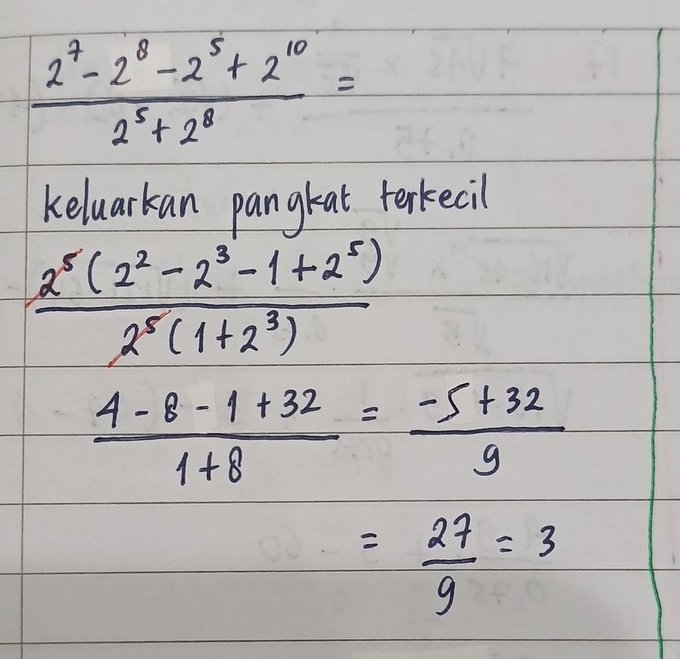 2⁷ - 2⁸ - 2⁵ + 2¹⁰ =
2⁵ + 2⁸
keluarkan pangkat terkecil
2⁵ (2² - 2³ - 1 + 2⁵)
2⁵ (1 + 2³)
4 - 8 - 1 + 32 = -5 + 32
1 + 8 9
= 27 = 3
9